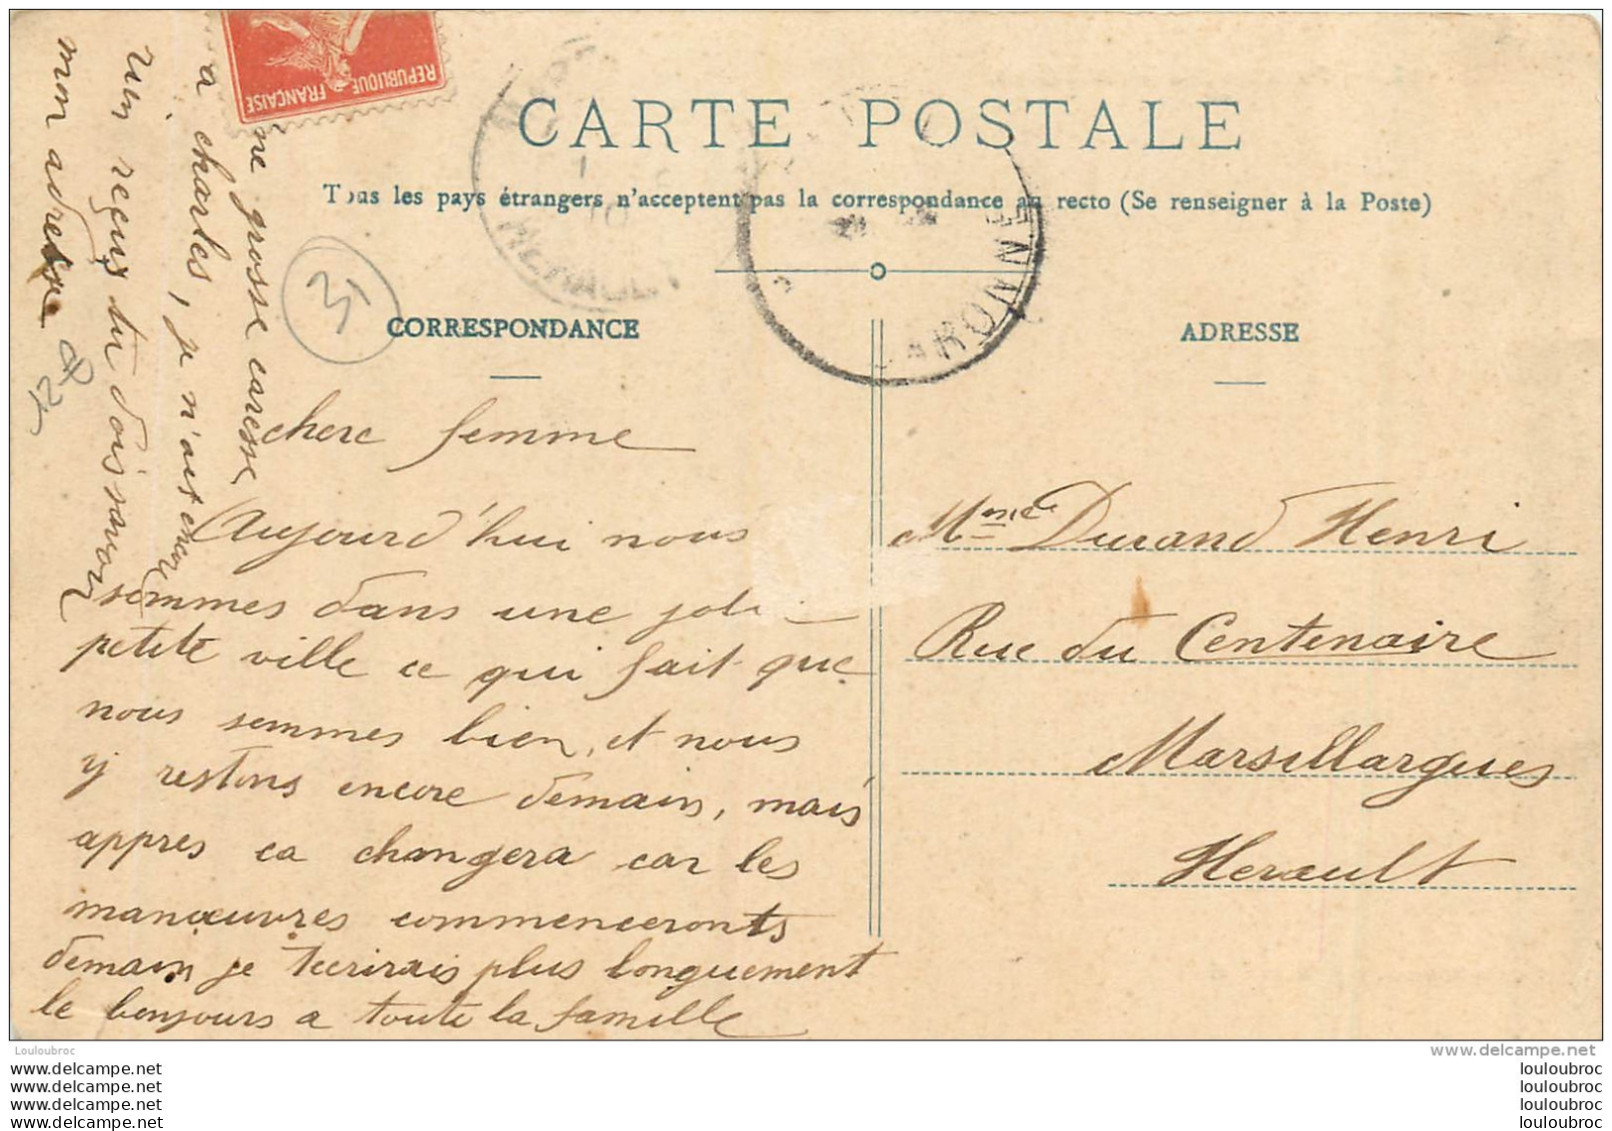 CARTE POSTALE
Tous les pays étrangers n'acceptent pas la correspondance au recto (Se renseigner à la Poste)
CORRESPONDANCE
ADRESSE
REPUBLIQUE FRANÇAISE
HERAULT
GARONNE
31
chere femme
Aujourd'hui nous
sommes dans une jolie
petite ville ce qui fait que
nous sommes bien, et nous
y restons encore demain, mais
appres ca changera car les
manœuvres commenceronts
demain je tecrirais plus longuement
le bonjours a toute la famille
ne grosse caresse
a charles, je n'ait encor
rien reçus tu dois savoir
mon adresse
Mme Durand Henri
Rue du Centenaire
Marsillargues
Herault
Louloubroc
www.delcampe.net
www.delcampe.net
louloubroc
www.delcampe.net
louloubroc
www.delcampe.net
louloubroc
www.delcampe.net
louloubroc